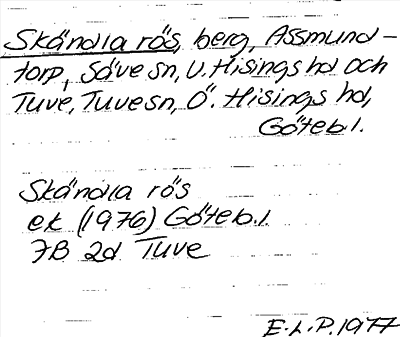 Skändla rös, berg, Assmund-
torp, Säve sn, V. Hisings hd och
Tuve, Tuve sn, Ö. Hisings hd,
Göteb.l.
Skändla rös
ek (1976) Göteb.l.
7B 2d Tuve
E.L.P. 1977